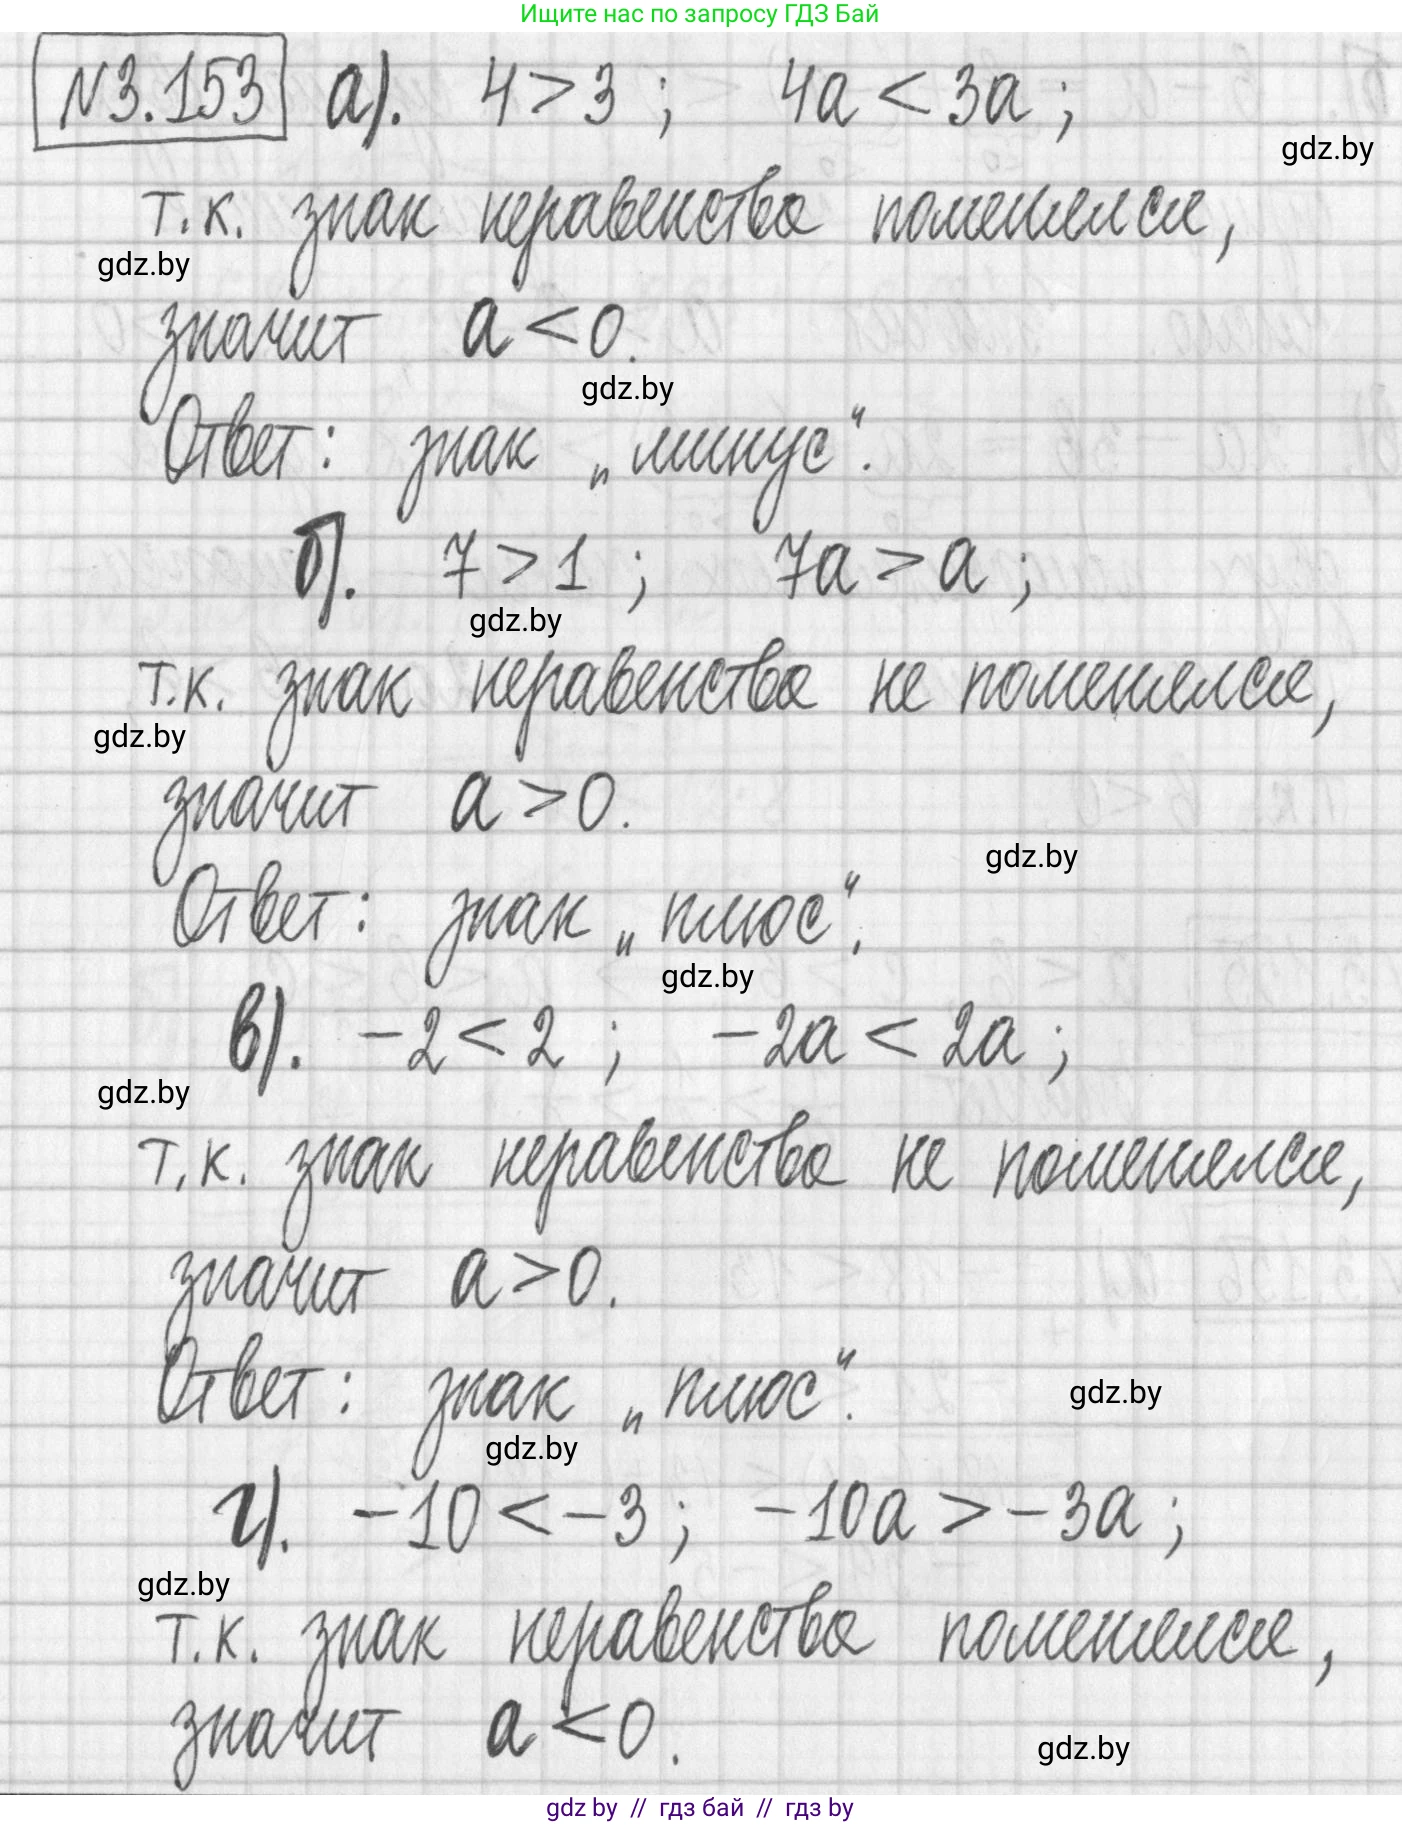 Ищите нас по запросу ГДЗ Бай
№3.153 а). 4 > 3 ; 4а < 3а ;
gdz.by
т.к. знак неравенства поменялся,
gdz.by
значит а < 0.
gdz.by
Ответ: знак „минус“.
б). 7 > 1 ; 7а > а ;
gdz.by
т.к. знак неравенства не поменялся,
gdz.by
значит а > 0.
gdz.by
Ответ: знак „плюс“.
gdz.by
в). -2 < 2 ; -2а < 2а ;
gdz.by
т.к. знак неравенства не поменялся,
значит а > 0.
Ответ: знак „плюс“.
gdz.by
gdz.by
г). -10 < -3 ; -10а > -3а ;
gdz.by
т.к. знак неравенства поменялся,
значит а < 0.
gdz.by
gdz by // гдз бай // гдз by